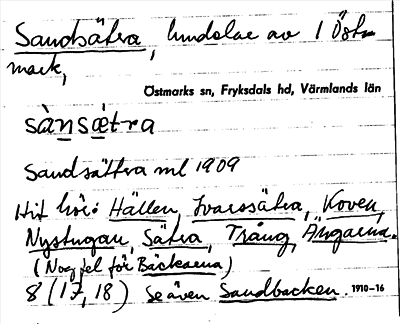 Sandsätra, lundelar av 1 Öst-
mark,
Östmarks sn, Fryksdals hd, Värmlands län
sànsǽtra
Sandsättra ml 1909
Hit hör: Hällen, Ivarssätra, Koven,
Nystugan, Sätra, Trång, Ängarna.
(Nog fel för Bäckarna)
8 (17, 18) se även Sandbacken. 1910-16